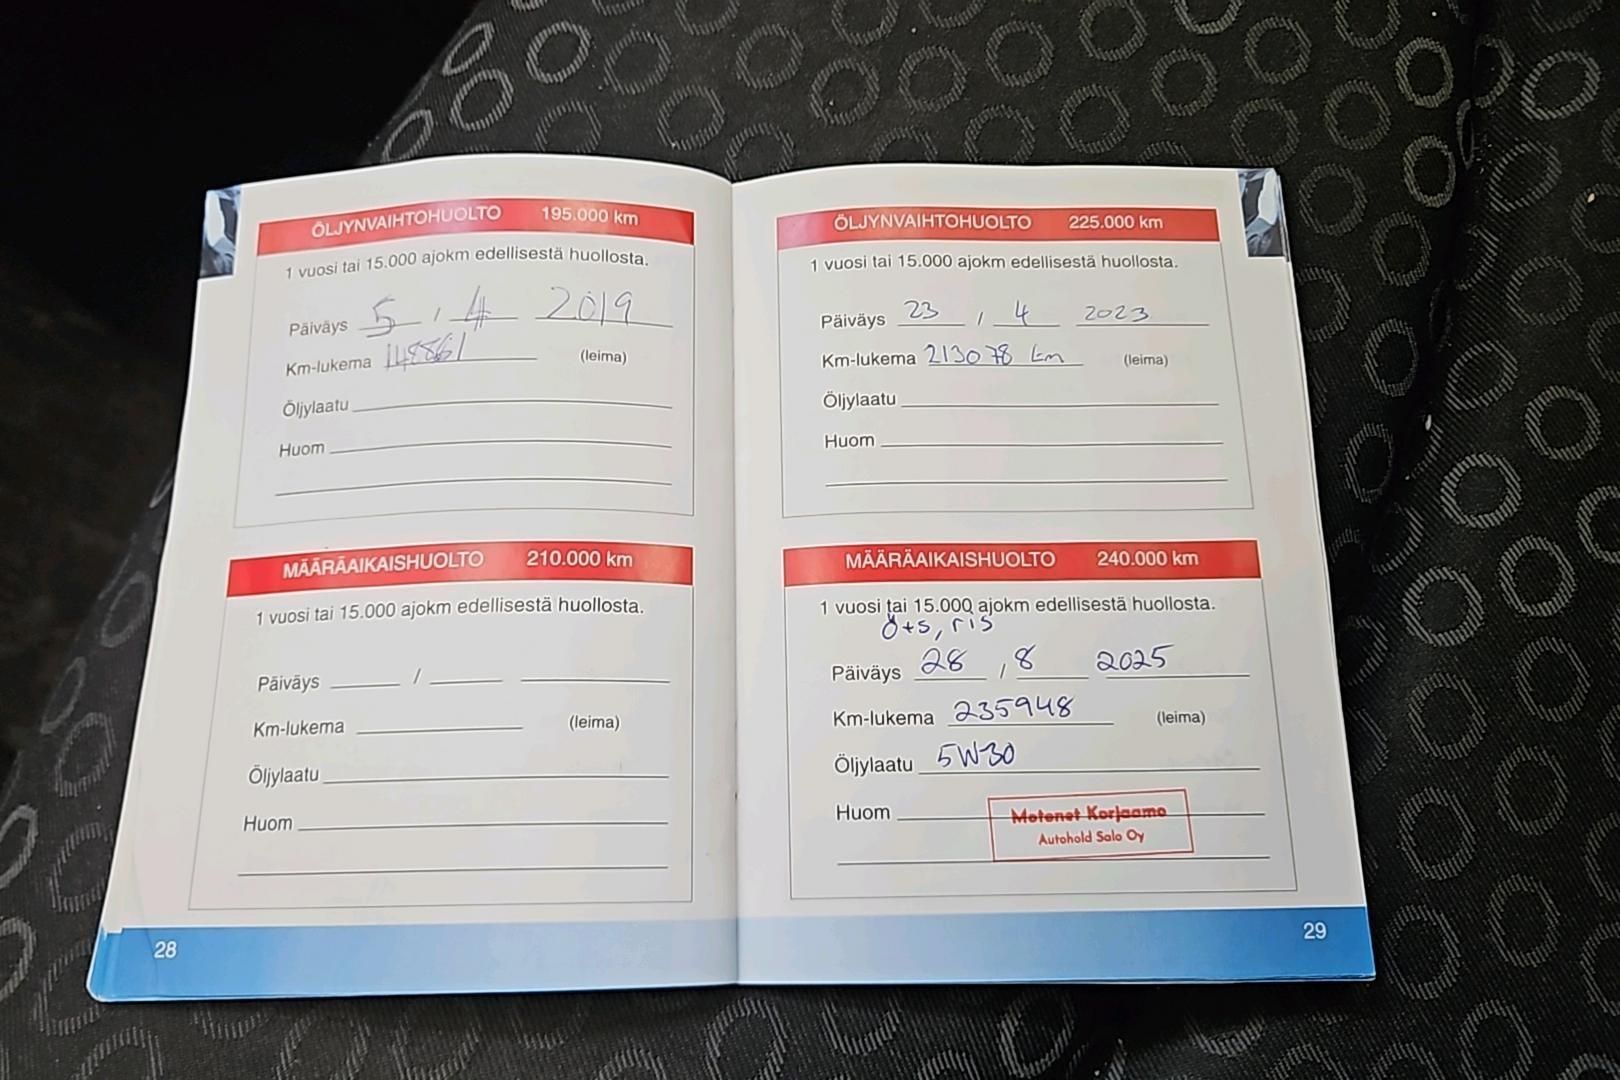 ÖLJYNVAIHTOHUOLTO 195.000 km
1 vuosi tai 15.000 ajokm edellisestä huollosta.
Päiväys 5 / 4 2019
Km-lukema 148861 (leima)
Öljylaatu
Huom
MÄÄRÄAIKAISHUOLTO 210.000 km
1 vuosi tai 15.000 ajokm edellisestä huollosta.
Päiväys /
Km-lukema (leima)
Öljylaatu
Huom
28
ÖLJYNVAIHTOHUOLTO 225.000 km
1 vuosi tai 15.000 ajokm edellisestä huollosta.
Päiväys 23 / 4 2023
Km-lukema 213078 km (leima)
Öljylaatu
Huom
MÄÄRÄAIKAISHUOLTO 240.000 km
1 vuosi tai 15.000 ajokm edellisestä huollosta.
Ö+s, ris
Päiväys 28 / 8 2025
Km-lukema 235948 (leima)
Öljylaatu 5W30
Huom
Motonet Korjaamo
Autohold Salo Oy
29